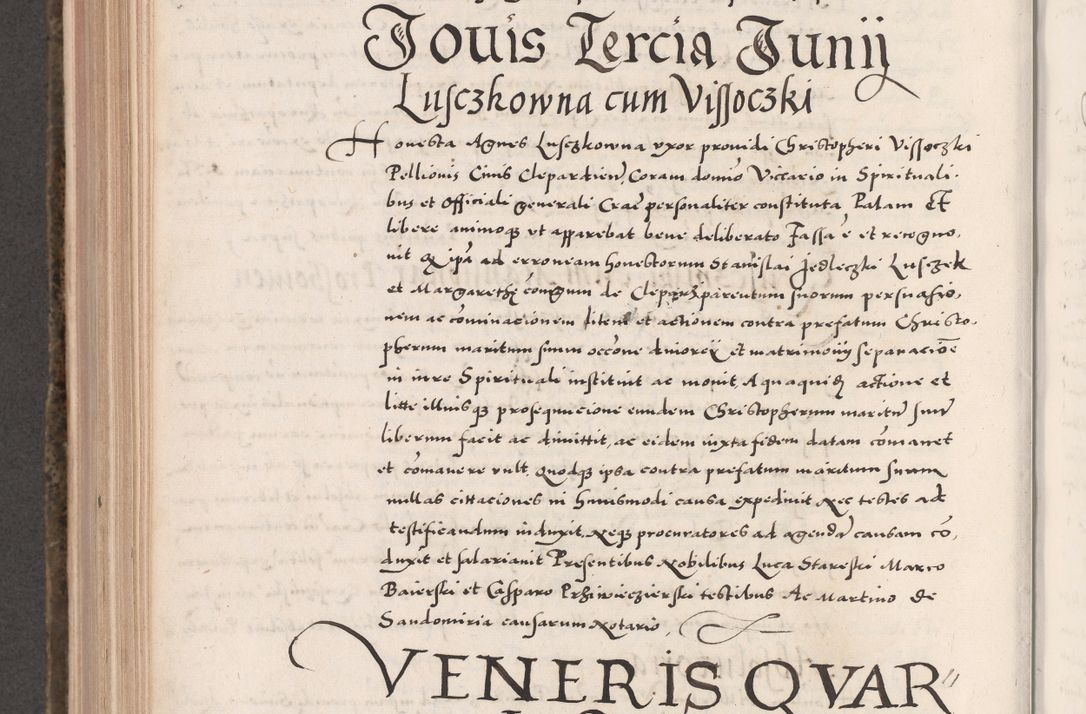 Jouis Tercia Junij
Lusczkowna cum Vissoczki
Honesta Agnes Lusczkowna vxor prouidi Christopheri Vissoczki
Pellionis Ciuis Clepardien̄, Coram domi͞o Viccario in Spirituali-
bus et Officiali generali Crac̄ personaliter constituta Palam Et
libere animoqȝ vt apparebat bene deliberato Fassa ē et recogno-
uit qȝ ip̄a ad erroneam honestorum Stanislai Jedleczki Lusczek
et Margarethę coniugum de Cleparz parentum suorum persuasio-
nem ac cōminacionem litem et actionem contra prefatum Christo-
pherum maritum suum occ̄one diuorcij et matrimonij separacioē
in iure Spirituali instituit ac mouit, A quaquidȝ actione et
litte illiusqȝ prosequucione eundem Christopherum maritū suū
liberum facit ac dimittit, ac eidem iuxta fidem datam cōmanet
et cōmanere vult. Quodqȝ ipsa contra prefatum maritum suum
nullas cittaciones in huiusmodi causa expediuit Nec testes ad
testificandum induxit, Neqȝ procuratores ad agendā causam cō-
duxit et salariauit Presentibus Nobilibus Luca Stareski Marco
Baierski et Casparo Przivieczierski testibus Ac Martino de
Sandomiria causarum Notario,
VENERIS QVAR